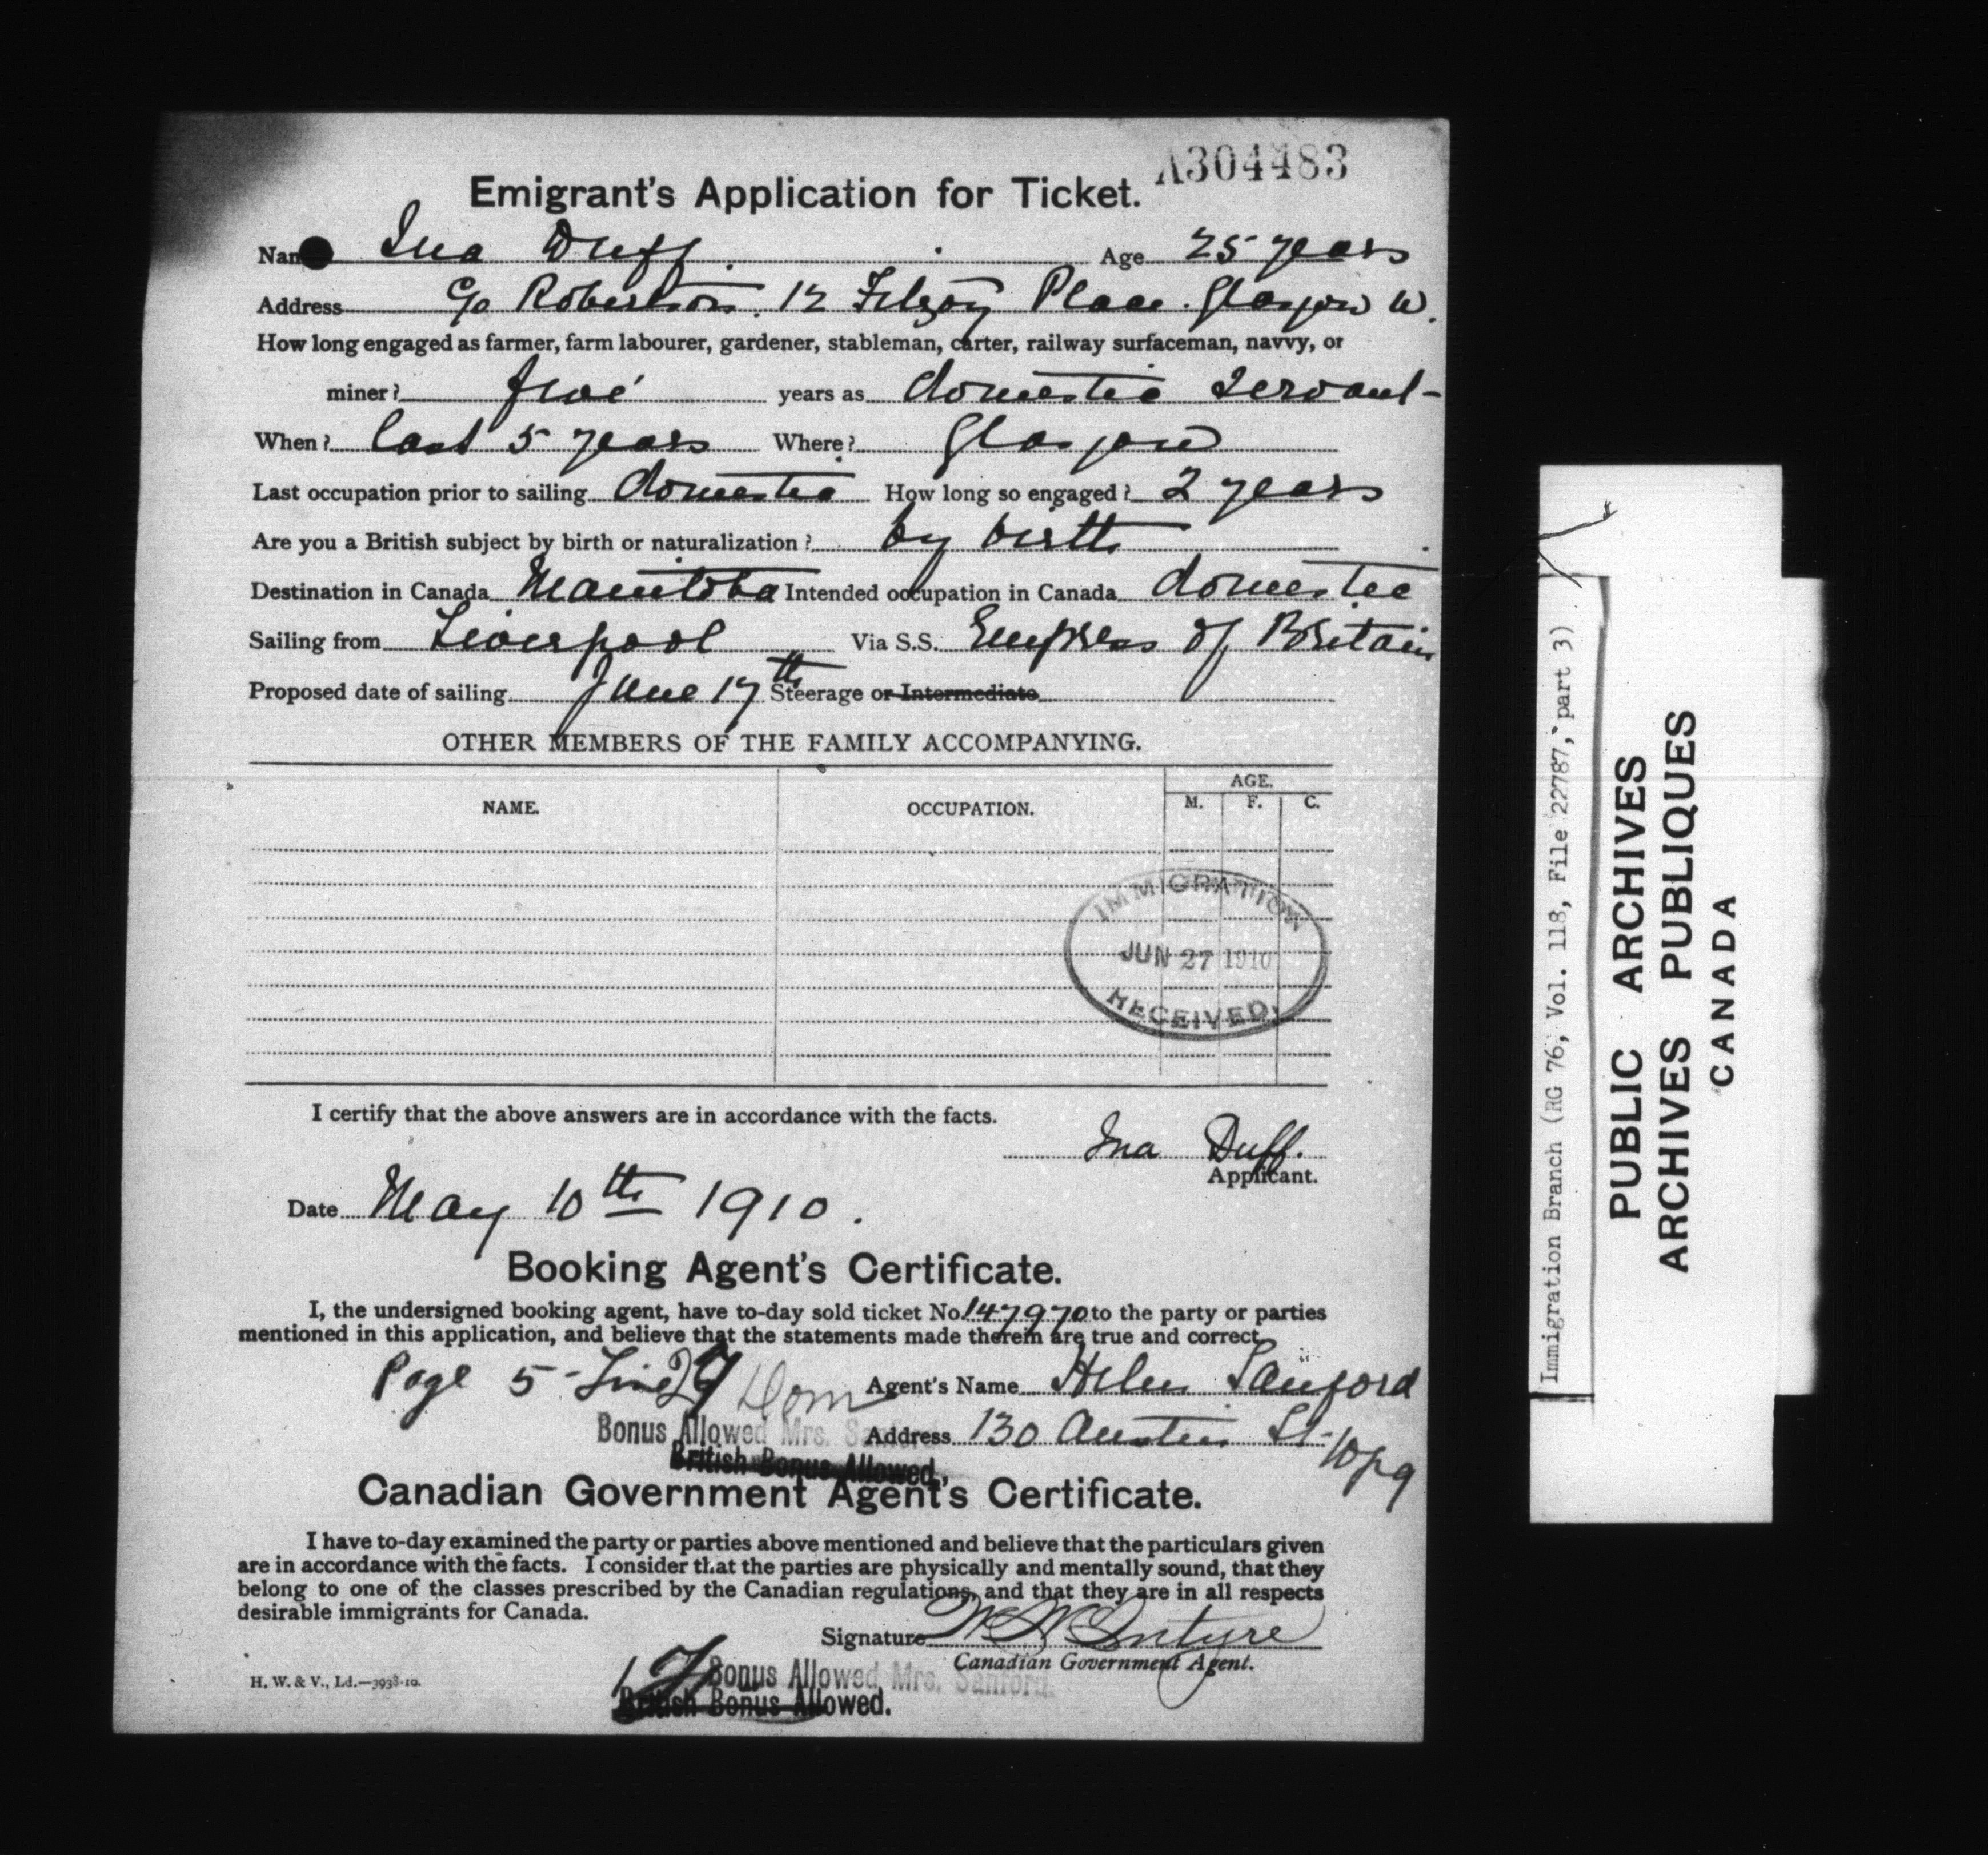 A304483
Emigrant's Application for Ticket.
Name Ina Duff. Age 25 years
Address c/o Robertson. 12 Fitzroy Place. Glasgow W.
How long engaged as farmer, farm labourer, gardener, stableman, carter, railway surfaceman, navvy, or
miner? five years as domestic servant
When? last 5 years Where? Glasgow
Last occupation prior to sailing domestic How long so engaged? 2 years
Are you a British subject by birth or naturalization? by birth
Destination in Canada Manitoba Intended occupation in Canada domestic
Sailing from Liverpool Via S.S. Empress of Britain
Proposed date of sailing June 17th Steerage or Intermediate
OTHER MEMBERS OF THE FAMILY ACCOMPANYING.
NAME. OCCUPATION. AGE.
M. F. C.
IMMIGRATION
JUN 27 1910
RECEIVED.
I certify that the above answers are in accordance with the facts.
Ina Duff.
Applicant.
Date May 10th 1910.
Booking Agent's Certificate.
I, the undersigned booking agent, have to-day sold ticket No. 147970 to the party or parties
mentioned in this application, and believe that the statements made therein are true and correct.
Page 5 - Line 29 Dom Agent's Name Helen Sanford
Bonus Allowed Mrs. Sanford Address 130 Austin St. Wpg
British Bonus Allowed.
Canadian Government Agent's Certificate.
I have to-day examined the party or parties above mentioned and believe that the particulars given
are in accordance with the facts. I consider that the parties are physically and mentally sound, that they
belong to one of the classes prescribed by the Canadian regulations, and that they are in all respects
desirable immigrants for Canada.
Signature
Canadian Government Agent.
H. W. & V., Ld.—3938-10.
Bonus Allowed Mrs. Sanford.
British Bonus Allowed.
Immigration Branch (RG 76, Vol. 118, File 22787, part 3)
PUBLIC ARCHIVES
ARCHIVES PUBLIQUES
CANADA